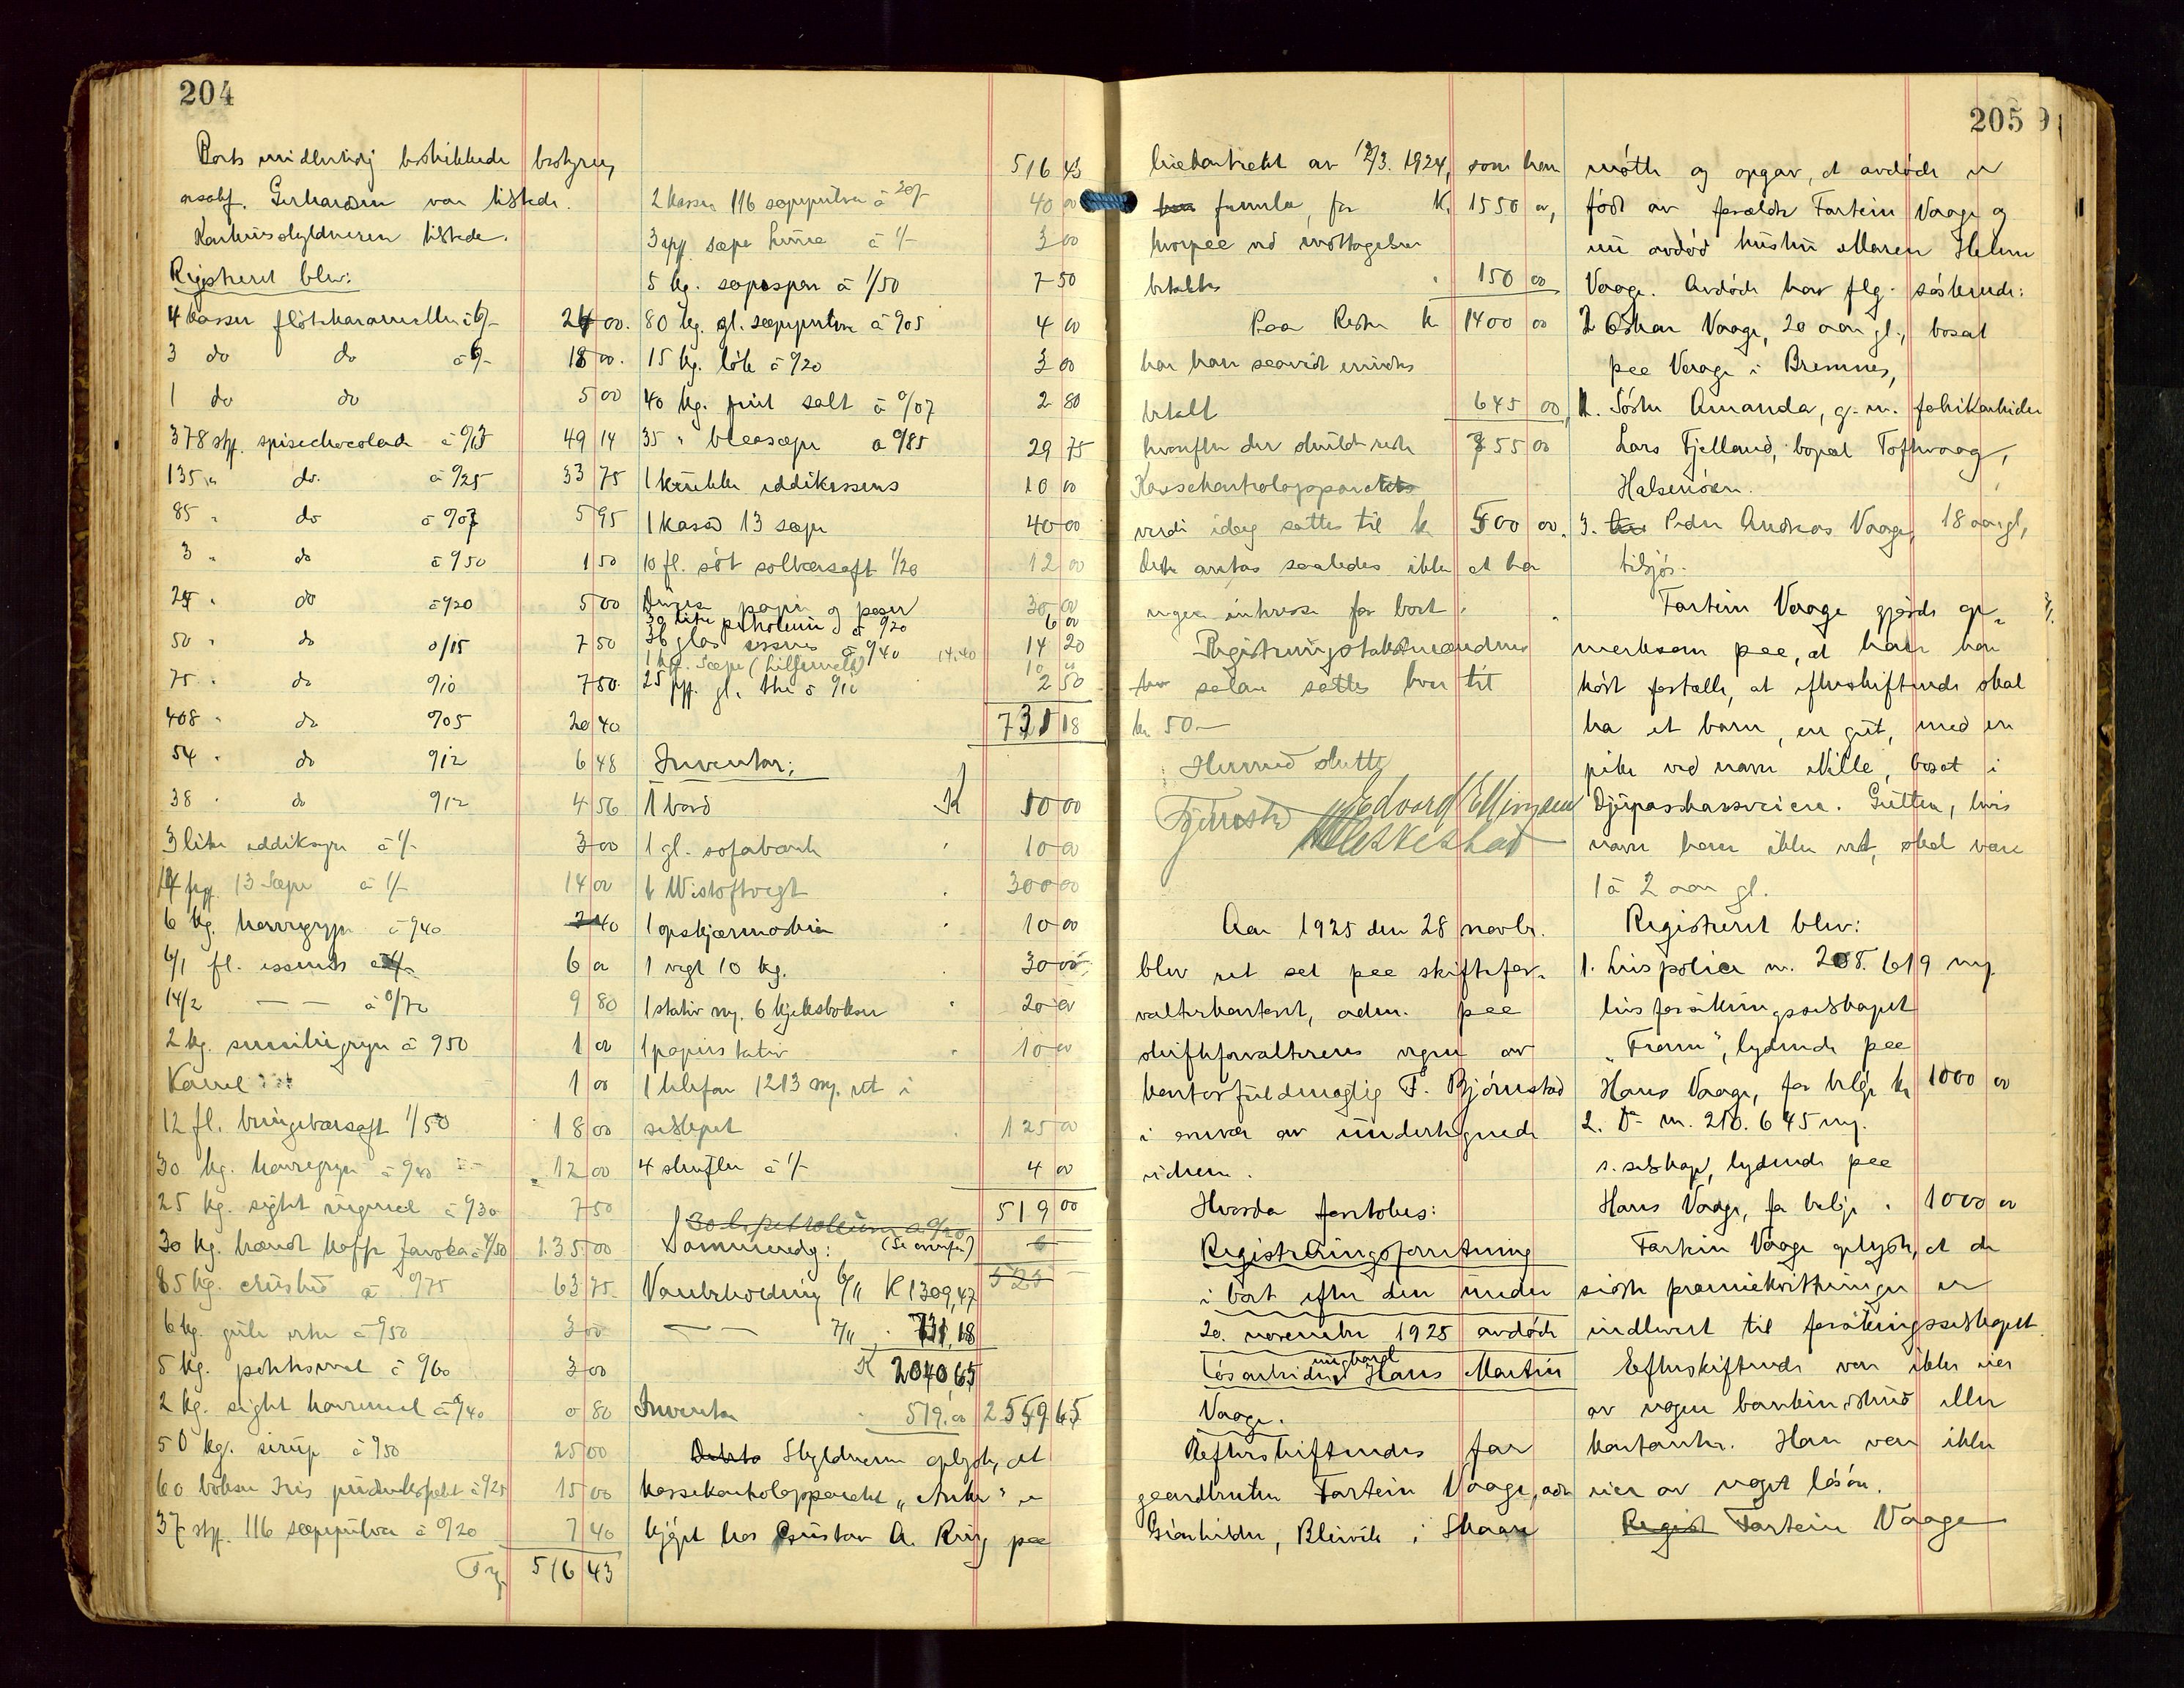 204
Boets midlertidig beskikkede bestyrer,
ansatf. Gerhardsen var tilstede.
Konkursskyldneren tilstede.
Registreret blev:
4 kasser flötekarameller à 6/- 24 00.
3 do do à 6/- 18 00.
1 do do 5 00
378 stk. spisechocolade à 0/13 49 14
135 " do. à 0/25 33 75
85 " do à 0/07 5 95
3 " do à 0/50 1 50
25 " do à 0/20 5 00
50 " do 0/15 7 50
75 " do 0/10 7 50
408 " do 0/05 20 40
54 " do 0/12 6 48
38 " do 0/12 4 56
3 liter eddiksyre à 1/- 3 00
14 pk. 13 Sæpe à 1/- 14 00
6 kg. havregryn à 0/40 2 40
6/1 fl. essents à 1/- 6 00
14/2 — — à 0/70 9 80
2 kg. semuliegryn à 0/50 1 00
Kanel 1 00
12 fl. bringebærsaft 1/50 18 00
30 kg. havregryn à 0/40 12 00
25 kg. sigtet rugmel à 0/30 7 50
30 kg. brændt kaffe Javoka à 4/50 135 00
85 kg. à 0/75 63 75
6 kg. gule erter à 0/50 3 00
5 kg. potetesmel à 0/60 3 00
2 kg. sigtet havremel à 0/40 0 80
50 kg. sirup à 0/50 25 00
60 bokser Iris à 0/25 15 00
37 stk. 116 sæpepulver à 0/20 7 40
516 43
516 43
2 kasser 116 sæpepulver à 20/- 40 00
3 stk. sæpe à 1/- 3 00
5 kg. sæpespon à 1/50 7 50
80 kg. gl. sæpepulver à 0/05 4 00
15 kg. lök à 0/20 3 00
40 kg. fint salt à 0/07 2 80
35 " bleasæpe à 0/85 29 75
1 krukke eddikessens 10 00
1 kasse 13 sæpe 40 00
10 fl. söt solbærsaft 1/20 12 00
Diverse papir og poser 30 00
30 liter petroleum à 0/20 6 00
36 glas essens à 0/40 14.40 14 20
1 kas. Sæpe (Liljemelk) 10 00
25 pk. gl. the à 0/10 2 50
731 18
Inventar:
1 bord K 10 00
1 gl. sofabænk 10 00
1 Wistoftvegt 300 00
1 opskjærmaskin 10 00
1 vegt 10 kg. 30 00
1 stativ og 6 kjeksbokser 20 00
1 papirstativ 10 00
1 telefon 1213 og ret i
selskapet 125 00
4 skufler à 1/- 4 00
519 00
30 l. petroleum à 0/20 6
Sammendrag: (Se ovenfor) 525
Vareberholdning 6/11 K 1309,47
— — 7/11 731,18
K 2040 65
Inventar 519.00 2559 65
Debito Skyldneren oplyste, at
kassekontrolapparatet "Anker" er
kjöpt hos Gustav A. Ring paa
205
leiekontrakt av 12/3. 1924, som han
han fremla, for K. 1550 00,
hvorpaa ved mottagelsen
betaltes 150 00
Paa Resten K 1400 00
har han seavidt erindres
betalt 645 00,
hvorefter der skuldt reste 755 00
Kassekontrolapparatets
verdi idag sattes til K 500 00.
Dette antas saaledes ikke at ha
nogen interesse for boet.
Registringstakstmændenes
salær sattes hver til
kr. 50.—
Hermed sluttet
Fjernestad Edvard Ellingsen
Aar 1925 den 28 novbr.
blev ret sat paa skiftefor-
valterkontoret, adm. paa
skifteforvalterens vegne av
kontorfuldmægtig F. Bjørnstad
i nærvær av undertegnede
vidner.
Hvorda foretokes:
Registreringsforretning
i boet efter den under
20. november 1925 avdöde
lösarbeider ungkarl Hans Martin
Vaage.
Efterskiftendes far
gaardbruker Tartein Vaage, adr.
Grönhilder, Bleivik i Skaare
mötte og opgav, at avdöde er
födt av forældre Tartein Vaage og
nu avdöd hustru Maren Helene
Vaage. Avdöde har flg. söskende:
2 Oskar Vaage, 20 aar gl., bosat
paa Vaage i Bremnes,
1. Söster Amanda, g. m. fabrikarbeider
Lars Fjelland, bopæl Toftevaag,
Halsenöen.
3. Peder Andreas Vaage, 18 aar gl,
tilsjös.
Tartein Vaage gjorde op-
merksom paa, at han har
hört fortælle, at efterskiftende skal
ha et barn, en gut, med en
pike ved navn Nille, bosat i
Djupaskarsveien. Gutten, hvis
navn han ikke vet, skal være
1 à 2 aar gl.
Registreret blev:
1. Livspolice nr. 208.619 og
livsforsikringsselskapet
"Fram", lydende paa
Hans Vaage, for belöp kr 1000 00
2. Do nr. 210.645 og
s. selskap, lydende paa
Hans Vaage, for belöp " 1000 00
Tartein Vaage oplyste, at de
sidste præmiekvitteringer er
indlevert til forsikringsselskapet.
Efterskiftende var ikke eier
av nogen bankindskud eller
kontanter. Han var ikke
eier av noget lösöre.
Regist Tartein Vaage